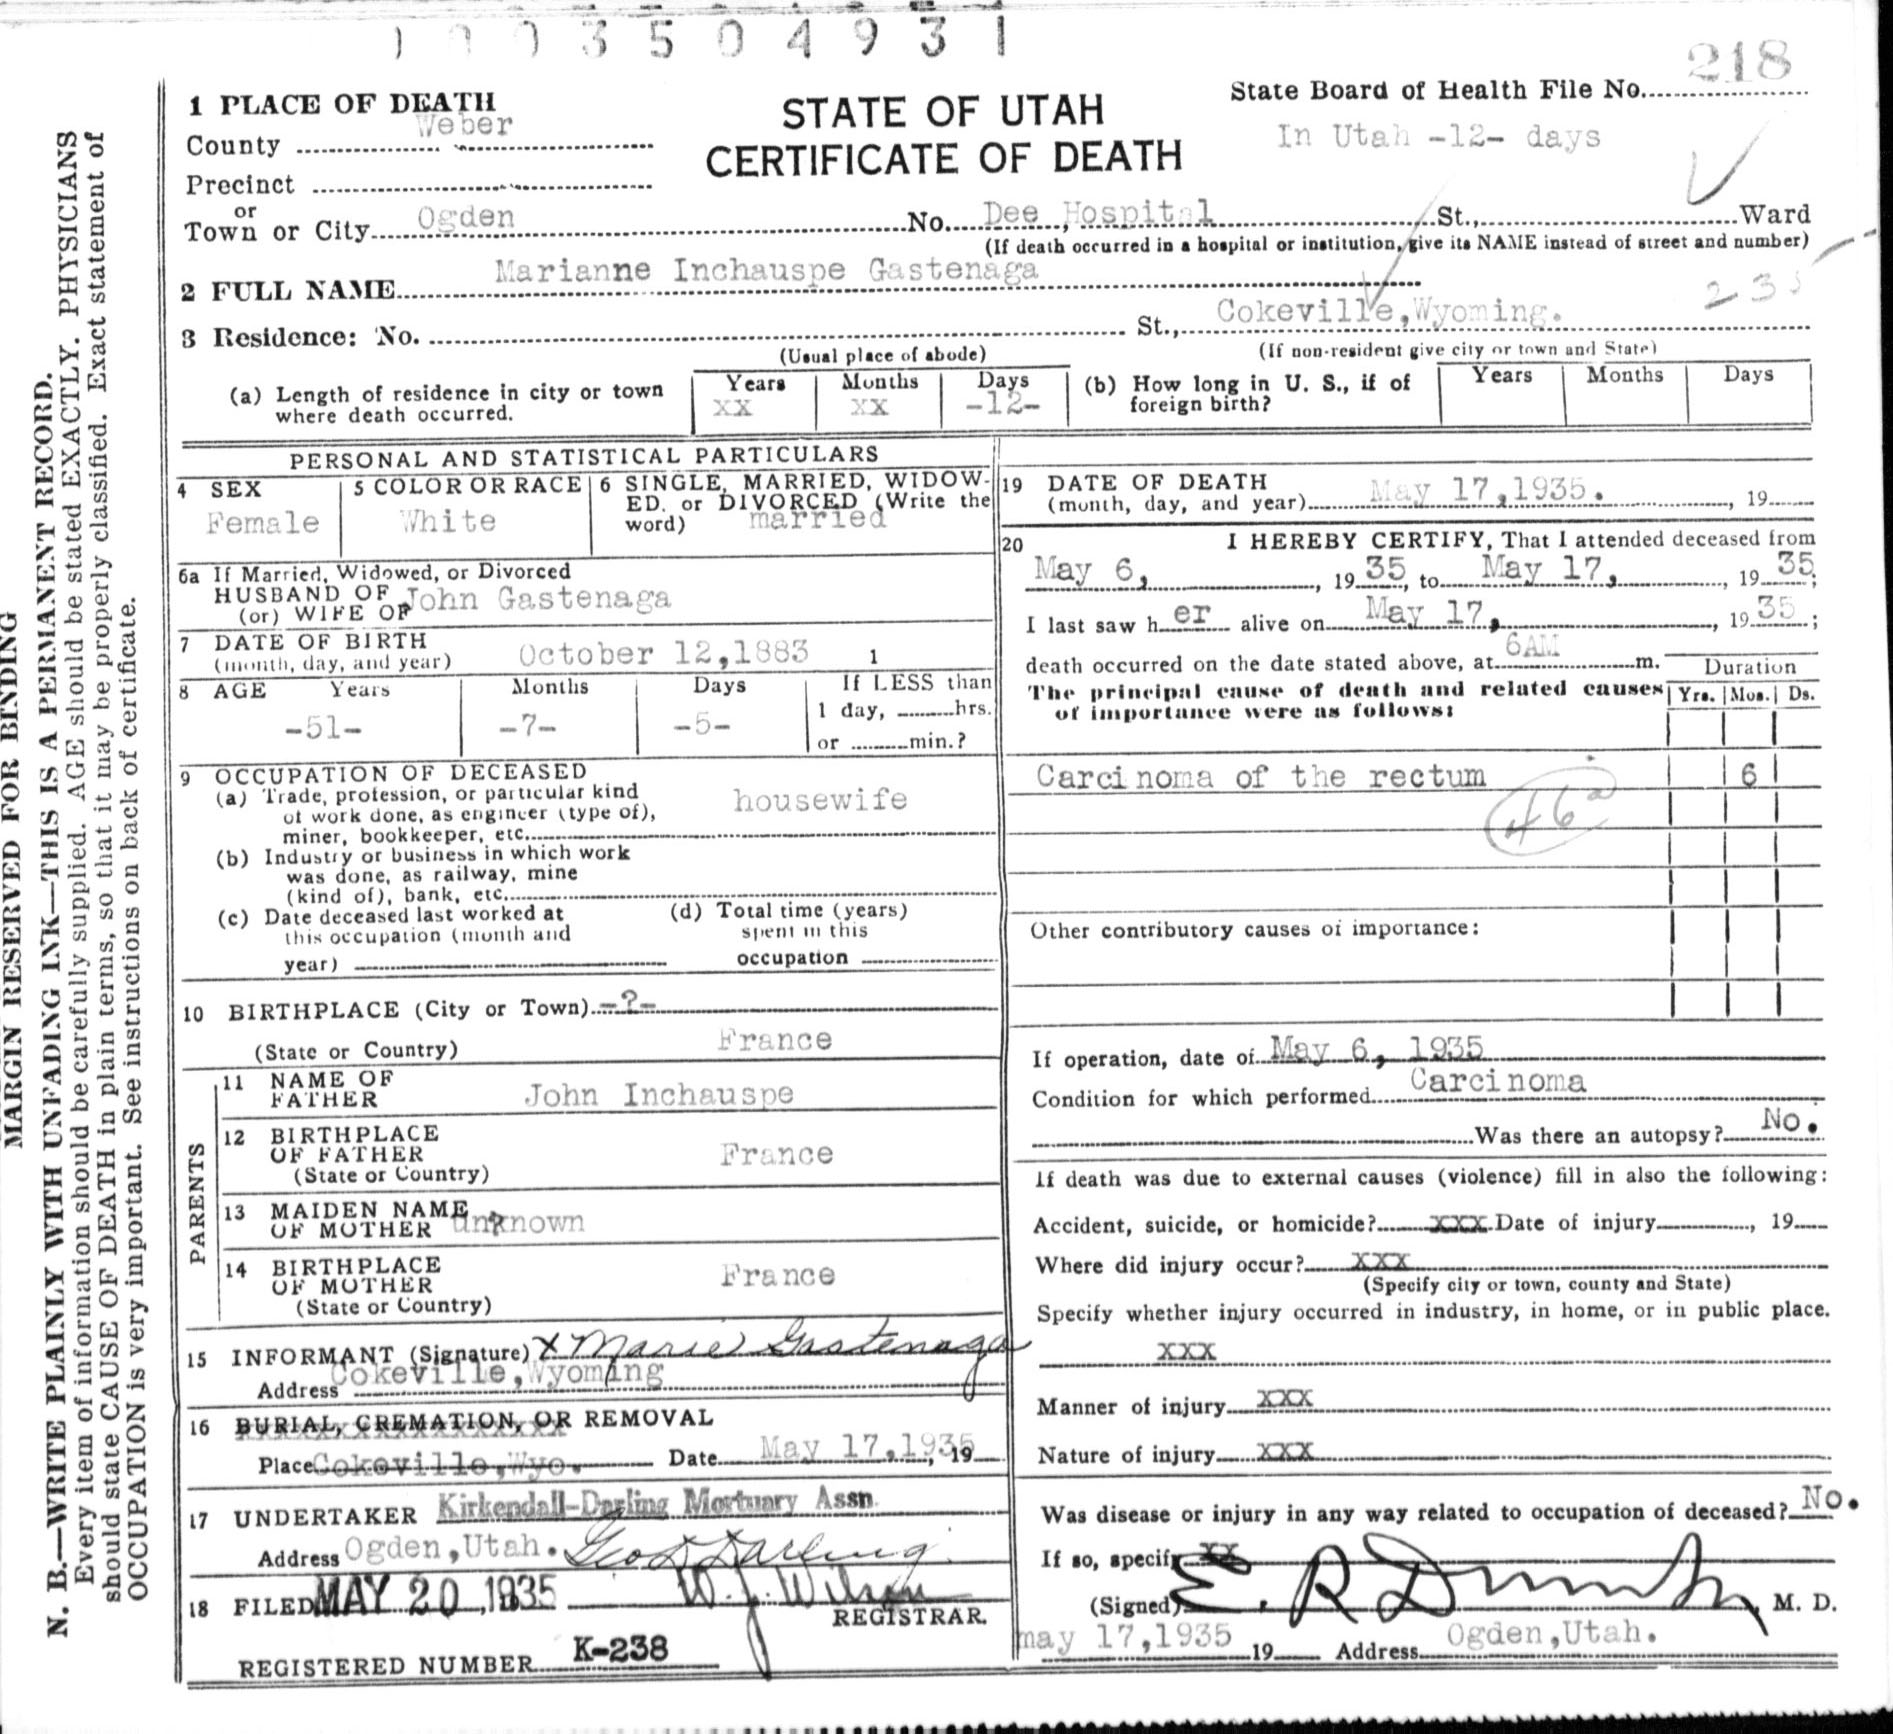 1003504931
218
1 PLACE OF DEATH
STATE OF UTAH
CERTIFICATE OF DEATH
State Board of Health File No.
In Utah -12- days
County Weber
Precinct
or
Town or City Ogden No. Dee, Hospital St., Ward
(If death occurred in a hospital or institution, give its NAME instead of street and number)
2 FULL NAME Marianne Inchauspe Gastenaga
235
3 Residence: No. St., Cokeville, Wyoming.
(Usual place of abode) (If non-resident give city or town and State)
(a) Length of residence in city or town where death occurred. Years xx Months xx Days -12-
(b) How long in U. S., if of foreign birth? Years Months Days
PERSONAL AND STATISTICAL PARTICULARS
4 SEX Female
5 COLOR OR RACE White
6 SINGLE, MARRIED, WIDOW-
ED. or DIVORCED (Write the
word) married
6a If Married, Widowed, or Divorced
HUSBAND OF John Gastenaga
(or) WIFE OF
7 DATE OF BIRTH
(month, day, and year) October 12,1883 1
8 AGE Years -51- Months -7- Days -5- If LESS than
1 day, hrs.
or min.?
9 OCCUPATION OF DECEASED
(a) Trade, profession, or particular kind
of work done, as engineer (type of),
miner, bookkeeper, etc. housewife
(b) Industry or business in which work
was done, as railway, mine
(kind of), bank, etc.
(c) Date deceased last worked at
this occupation (month and
year)
(d) Total time (years)
spent in this
occupation
10 BIRTHPLACE (City or Town) -?-
(State or Country) France
PARENTS
11 NAME OF
FATHER John Inchauspe
12 BIRTHPLACE
OF FATHER
(State or Country) France
13 MAIDEN NAME
OF MOTHER unknown
14 BIRTHPLACE
OF MOTHER
(State or Country) France
15 INFORMANT (Signature) x Marie Gastenaga
Address Cokeville, Wyoming
16 BURIAL, CREMATION, OR REMOVAL
Place Cokeville, Wyo. Date May 17,1935 19
17 UNDERTAKER Kirkendall-Darling Mortuary Assn.
Address Ogden, Utah. Geo K Darling
18 FILED MAY 20, 1935 W. J. Wilson
REGISTRAR.
REGISTERED NUMBER K-238
19 DATE OF DEATH
(month, day, and year) May 17,1935. , 19
20 I HEREBY CERTIFY, That I attended deceased from
May 6, , 19 35, to May 17, , 19 35;
I last saw h er alive on May 17, , 19 35;
death occurred on the date stated above, at 6AM m.
The principal cause of death and related causes
of importance were as follows:
Duration
Yrs. Mos. Ds.
Carcinoma of the rectum 6
46a
Other contributory causes of importance:
If operation, date of May 6, 1935
Condition for which performed Carcinoma
Was there an autopsy? No.
If death was due to external causes (violence) fill in also the following:
Accident, suicide, or homicide? xxx Date of injury , 19
Where did injury occur? xxx
(Specify city or town, county and State)
Specify whether injury occurred in industry, in home, or in public place.
xxx
Manner of injury xxx
Nature of injury xxx
Was disease or injury in any way related to occupation of deceased? No.
If so, specify xx
(Signed) E. R. M. D.
may 17,1935 19 Address Ogden, Utah.
MARGIN RESERVED FOR BINDING
N. B.—WRITE PLAINLY WITH UNFADING INK—THIS IS A PERMANENT RECORD.
Every item of information should be carefully supplied. AGE should be stated EXACTLY. PHYSICIANS
should state CAUSE OF DEATH in plain terms, so that it may be properly classified. Exact statement of
OCCUPATION is very important. See instructions on back of certificate.